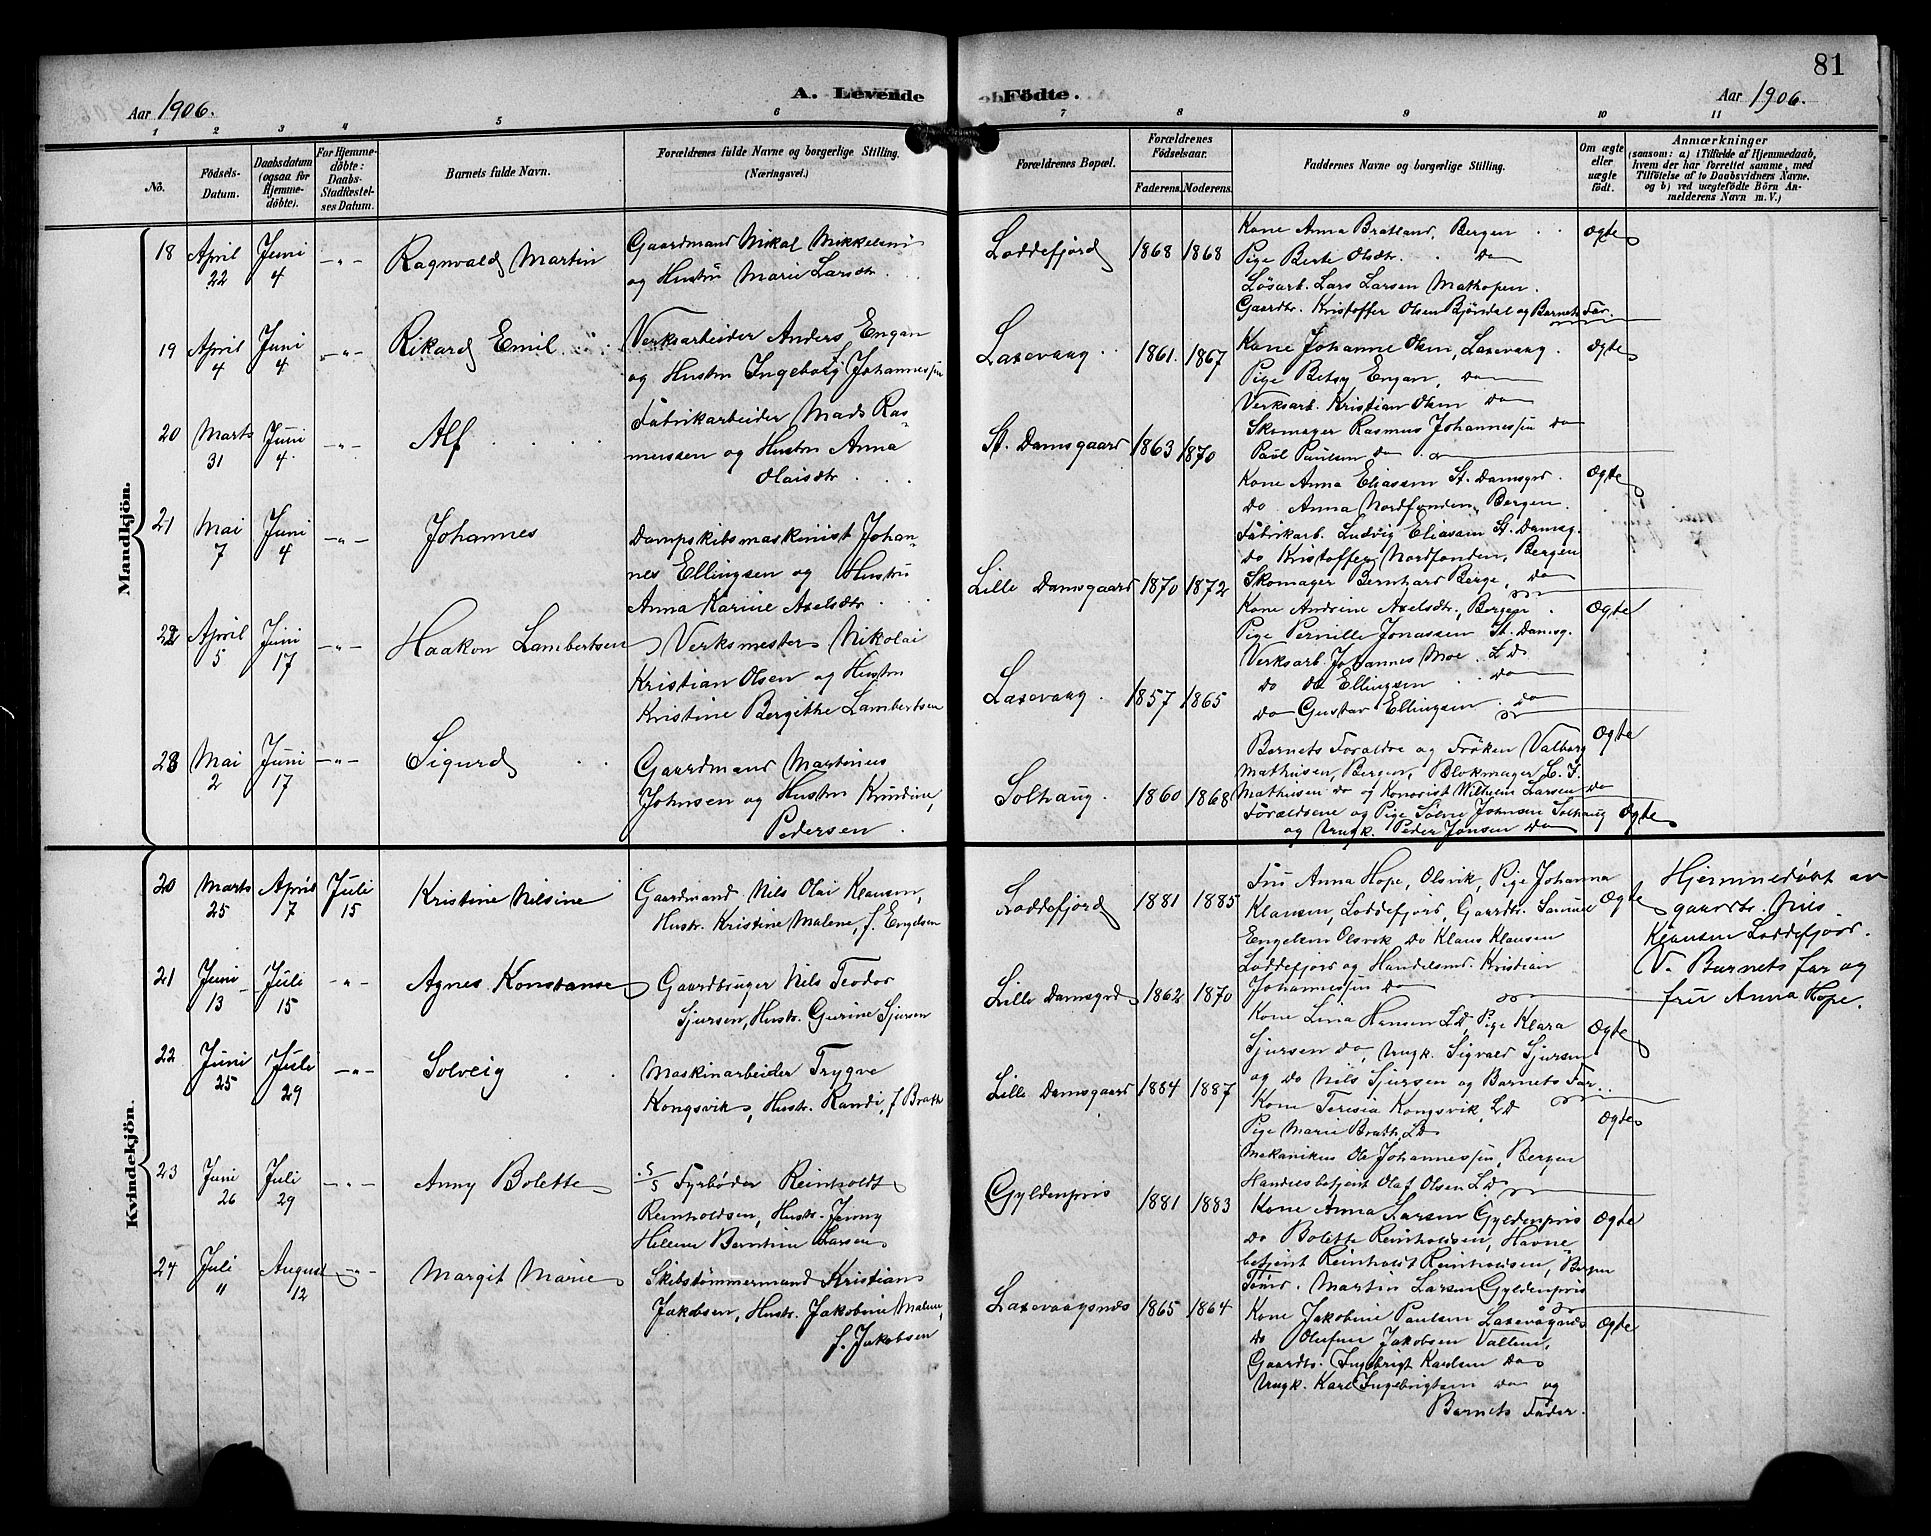 81
Aar 1906.
A. Levende
Födte.
Aar 1906.
1 2 3 4 5 6 7 8 9 10 11
No.
Födsels-
Datum.
Daabsdatum
(ogsaa for
Hjemme-
döbte).
For Hjemme-
döbte:
Daabs-
Stadfæstel-
ses Datum.
Barnets fulde Navn.
Forældrenes fulde Navne og borgerlige Stilling.
(Næringsvei.)
Forældrenes Bopæl.
Forældrenes
Födselsaar.
Faderens. Moderens.
Faddernes Navne og borgerlige Stilling.
Om ægte
eller
uægte
födt.
Anmærkninger
(saasom: a) i Tilfælde af Hjemmedaab,
hvem der har forrettet samme, med
Tilföielse af to Daabsvidners Navne.
og b) ved uægtefödte Börn An-
melderens Navn m. V.)
Mandkjön.
18 April 22 Juni 4 -"- Ragnvald Martin
Gaardmand Mikal Mikkelsen
og Hustru Marie Larsdtr.
Loddefjord 1868 1868
Kone Anna Bratland, Bergen . . Ægte
Pige Berte Olsdtr. . . do
Løsarb. Lars Larsen Mathopen.
Gaardbr. Kristoffer Olsen Bjørndal og Barnets Far.
19 April 4 Juni 4 -"- Rikard Emil
Verksarbeider Anders Engan
og Hustru Ingeborg Johannessen
Laxevaag. 1861. 1867
Kone Johanne Olsen, Laxevaag. Ægte
Pige Betsy Engan, do
Verksarb. Kristian Olsen do
Skomager Rasmus Johannessen do
Paul Paulsen do
20 Marts 31 Juni 4 -"- Alf
Fabrikarbeider Mads Ras-
mussen og Hustru Anna
Olaisdtr.
St. Damsgaard 1863 1870
Kone Anna Eliassen St. Damsgrd. Ægte
do. Anna Nordfonden, Bergen.
Fabrikarb. Ludvig Eliassen St. Damsg.
do Kristoffer Nordfonden, Bergen
Skomager Bernhard Berge, do
21 Mai 7 Juni 4 -"- Johannes
Dampskibsmaskinist Johan-
nes Ellingsen og Hustru
Anna Karine Axelsdtr.
Lille Damsgaard 1870 1872
Kone Andrine Axelsdtr., Bergen. Ægte
Pige Pernille Jonassen St. Damsg.
Verksarb. Johannes Moe. L D
do do Ellingsen . . do
do Gustav Ellingsen. do
22 April 5 Juni 17 -"- Haakon Lambertsen
Verksmester Nikolai
Kristian Olsen og Hustru
Kristine Bergithe Lambertsen
Laxevaag. 1857 1865
Barnets Forældre og Frøken Valborg Ægte
Mathisen, Bergen, Blokmager C. F.
Mathisen do og Kontorist Wilhelm Larsen do
23 Mai 2 Juni 17 -"- Sigurd
Gaardmand Martinus
Johnsen og Hustru Knudine
Pedersen
Solhaug. 1860 1868
Forældrene og Pige Johnsen Solhaug Ægte
og Ungk. Peder Jonsen do
Kvindekjön.
20 Marts 25 April 7 Juli 15 Kristine Nilsine
Gaardmand Nils Olai Klausen,
Hustr. Kristine Malene, f. Engelsen
Loddefjord 1881 1885
Fru Anna Hope, Olsvik, Pige Johanna
Klausen, Loddefjord, Gaardbr. Samuel Ægte
Engelsen Olsvik do Klaus Klausen
Loddefjord og Handelsmd. Kristian
Johannessen do
Hjemmedøbt av
gaardbr. Nils
Klausen Loddefjord.
V. Barnets far og
fru Anna Hope.
21 Juni 13 Juli 15 -"- Agnes Konstanse
Gaardbruger Nils Teodor
Sjursen, Hustr. Gurine Sjursen
Lille Damsgrd 1862 1870
Kone Lina Hansen LD, Pige Klara Ægte
Sjursen do, Ungk. Sigvald Sjursen
og do Nils Sjursen og Barnets Far.
22 Juni 25 Juli 29 -"- Solveig
Maskinarbeider Trygve
Kongsvik, Hustr. Randi, f Brath
Lille Damsgaard 1884 1887
Kone Teresia Kongsvik, LD Ægte
Pige Marie Brath, LD
Mekanikus Ole Johannessen, Bergen
Handelsbetjent Olaf Olsen LD
23 Juni 26 Juli 29 -"- Anny Bolette
S/S Fyrbøder Reinholdt
Reinholdsen, Hustr. Jenny
Helene Berntine Larsen
Gyldenpris 1881 1883
Kone Anna Larsen Gyldenpris Ægte
do Bolette Reinholdsen, Havne-
betjent Reinholdt Reinholdsen, Bergen
Tømd. Martin Larsen Gyldenpris
24 Juli " August 12 -"- Margit Marie
Skibstømmermand Kristian
Jakobsen, Hustr. Jakobine Malene,
f. Jakobsen
Laxevaagsnæs 1865 1864
Kone Jakobine Paulsen Laxevaagnæs Ægte
do Olufine Jakobsen Vallem,
Gaardbr. Ingebrigt Karlsen do
Ungk. Karl Ingebrigtsen do og
Barnets Fader.